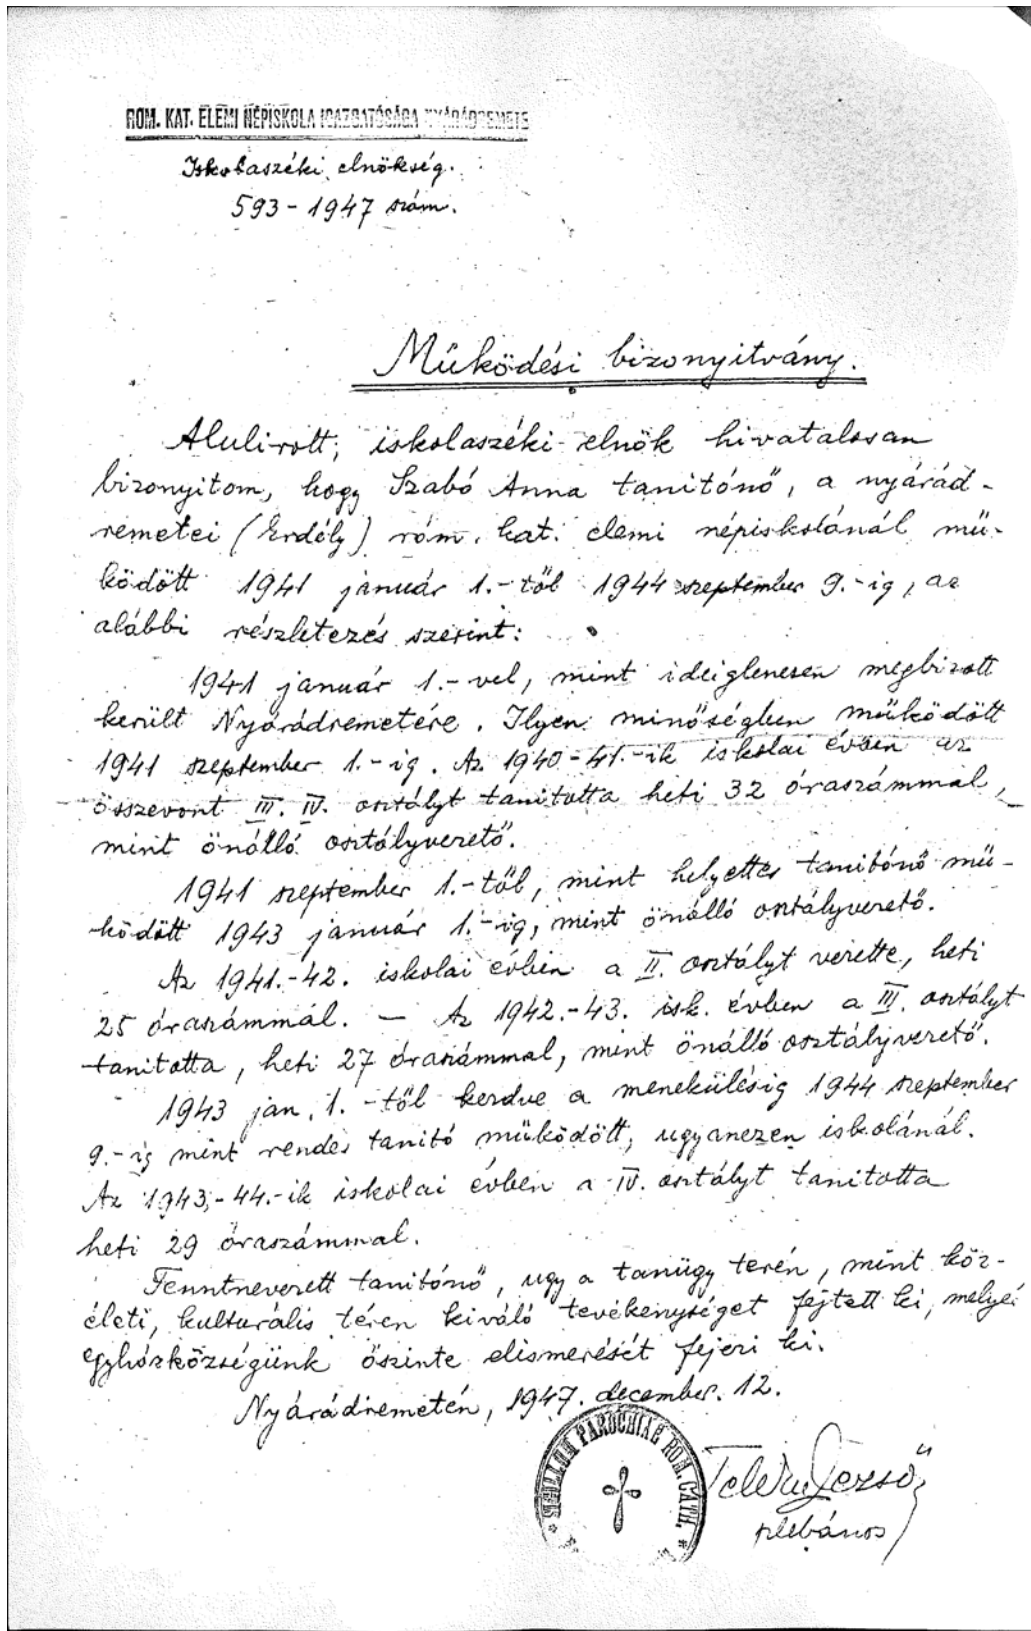 ROM. KAT. ELEMI NÉPISKOLA IGAZGATÓSÁGA NYÁRÁDREMETE
Iskolaszéki elnökség.
593 - 1947 szám.
Működési bizonyitvány.
Alulirott, iskolaszéki elnök hivatalosan
bizonyitom, hogy Szabó Anna tanitónő, a nyárád-
remetei (Erdély) róm. kat. elemi népiskolánál mű-
ködött 1941 január 1.-től 1944 szeptember 9.-ig, az
alábbi részletezés szerint:
1941 január 1.-vel, mint ideiglenesen megbizott
került Nyárádremetére. Ilyen minőségben működött
1941 szeptember 1.-ig. Az 1940-41.-ik iskolai évben az
összevont III. IV. osztályt tanitotta heti 32 óraszámmal,
mint önálló osztályvezető.
1941 szeptember 1.-től, mint helyettes tanitónő mű-
ködött 1943 január 1.-ig, mint önálló osztályvezető.
Az 1941.-42. iskolai évben a II. osztályt vezette, heti
25 óraszámmal. — Az 1942.-43. isk. évben a III. osztályt
tanitotta, heti 27 óraszámmal, mint önálló osztályvezető.
1943 jan. 1.-től kezdve a menekülésig 1944 szeptember
9.-ig mint rendes tanitó működött, ugyanezen iskolánál.
Az 1943.-44.-ik iskolai évben a IV. osztályt tanitotta
heti 29 óraszámmal.
Fenntnevezett tanitónő, ugy a tanügy terén, mint köz-
életi, kulturális téren kiváló tevékenységet fejtett ki, melyér
egyházközségünk őszinte elismerését fejezi ki.
Nyárádremetén, 1947. december. 12.
SIGILLUM PAROCHIAE ROM. CATH.
Dezső
plébános